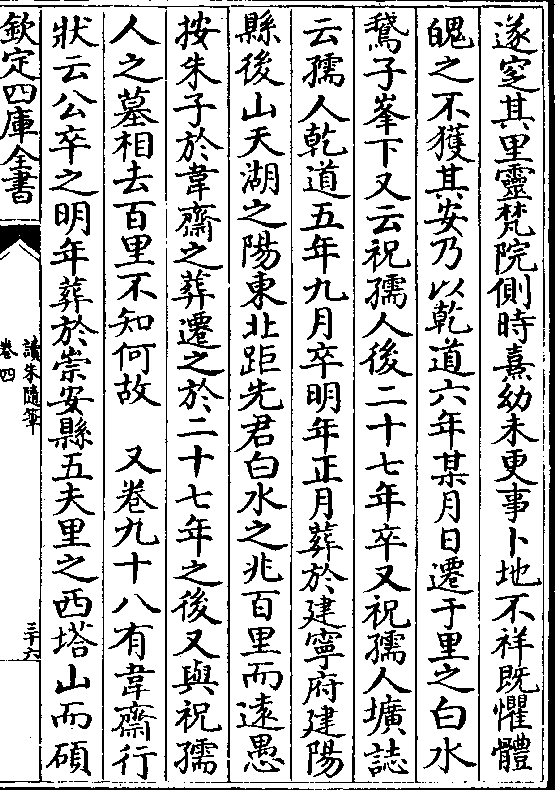 遂窆其里靈梵院側時熹幼未更事卜地不祥既懼體
魄之不獲其安乃以乾道六年某月日遷于里之白水
鵞子峯下又云祝孺人後二十七年卒又祝孺人壙誌
云孺人乾道五年九月卒明年正月葬於建寧府建陽
縣後山天湖之陽東北距先君白水之兆百里而遠愚
按朱子於韋齋之葬遷之於二十七年之後又與祝孺
人之墓相去百里不知何故　又卷九十八有韋齋行
狀云公卒之明年葬於崇安縣五夫里之西塔山而碩
欽定四庫全書
讀朱隨筆
卷四
三十六